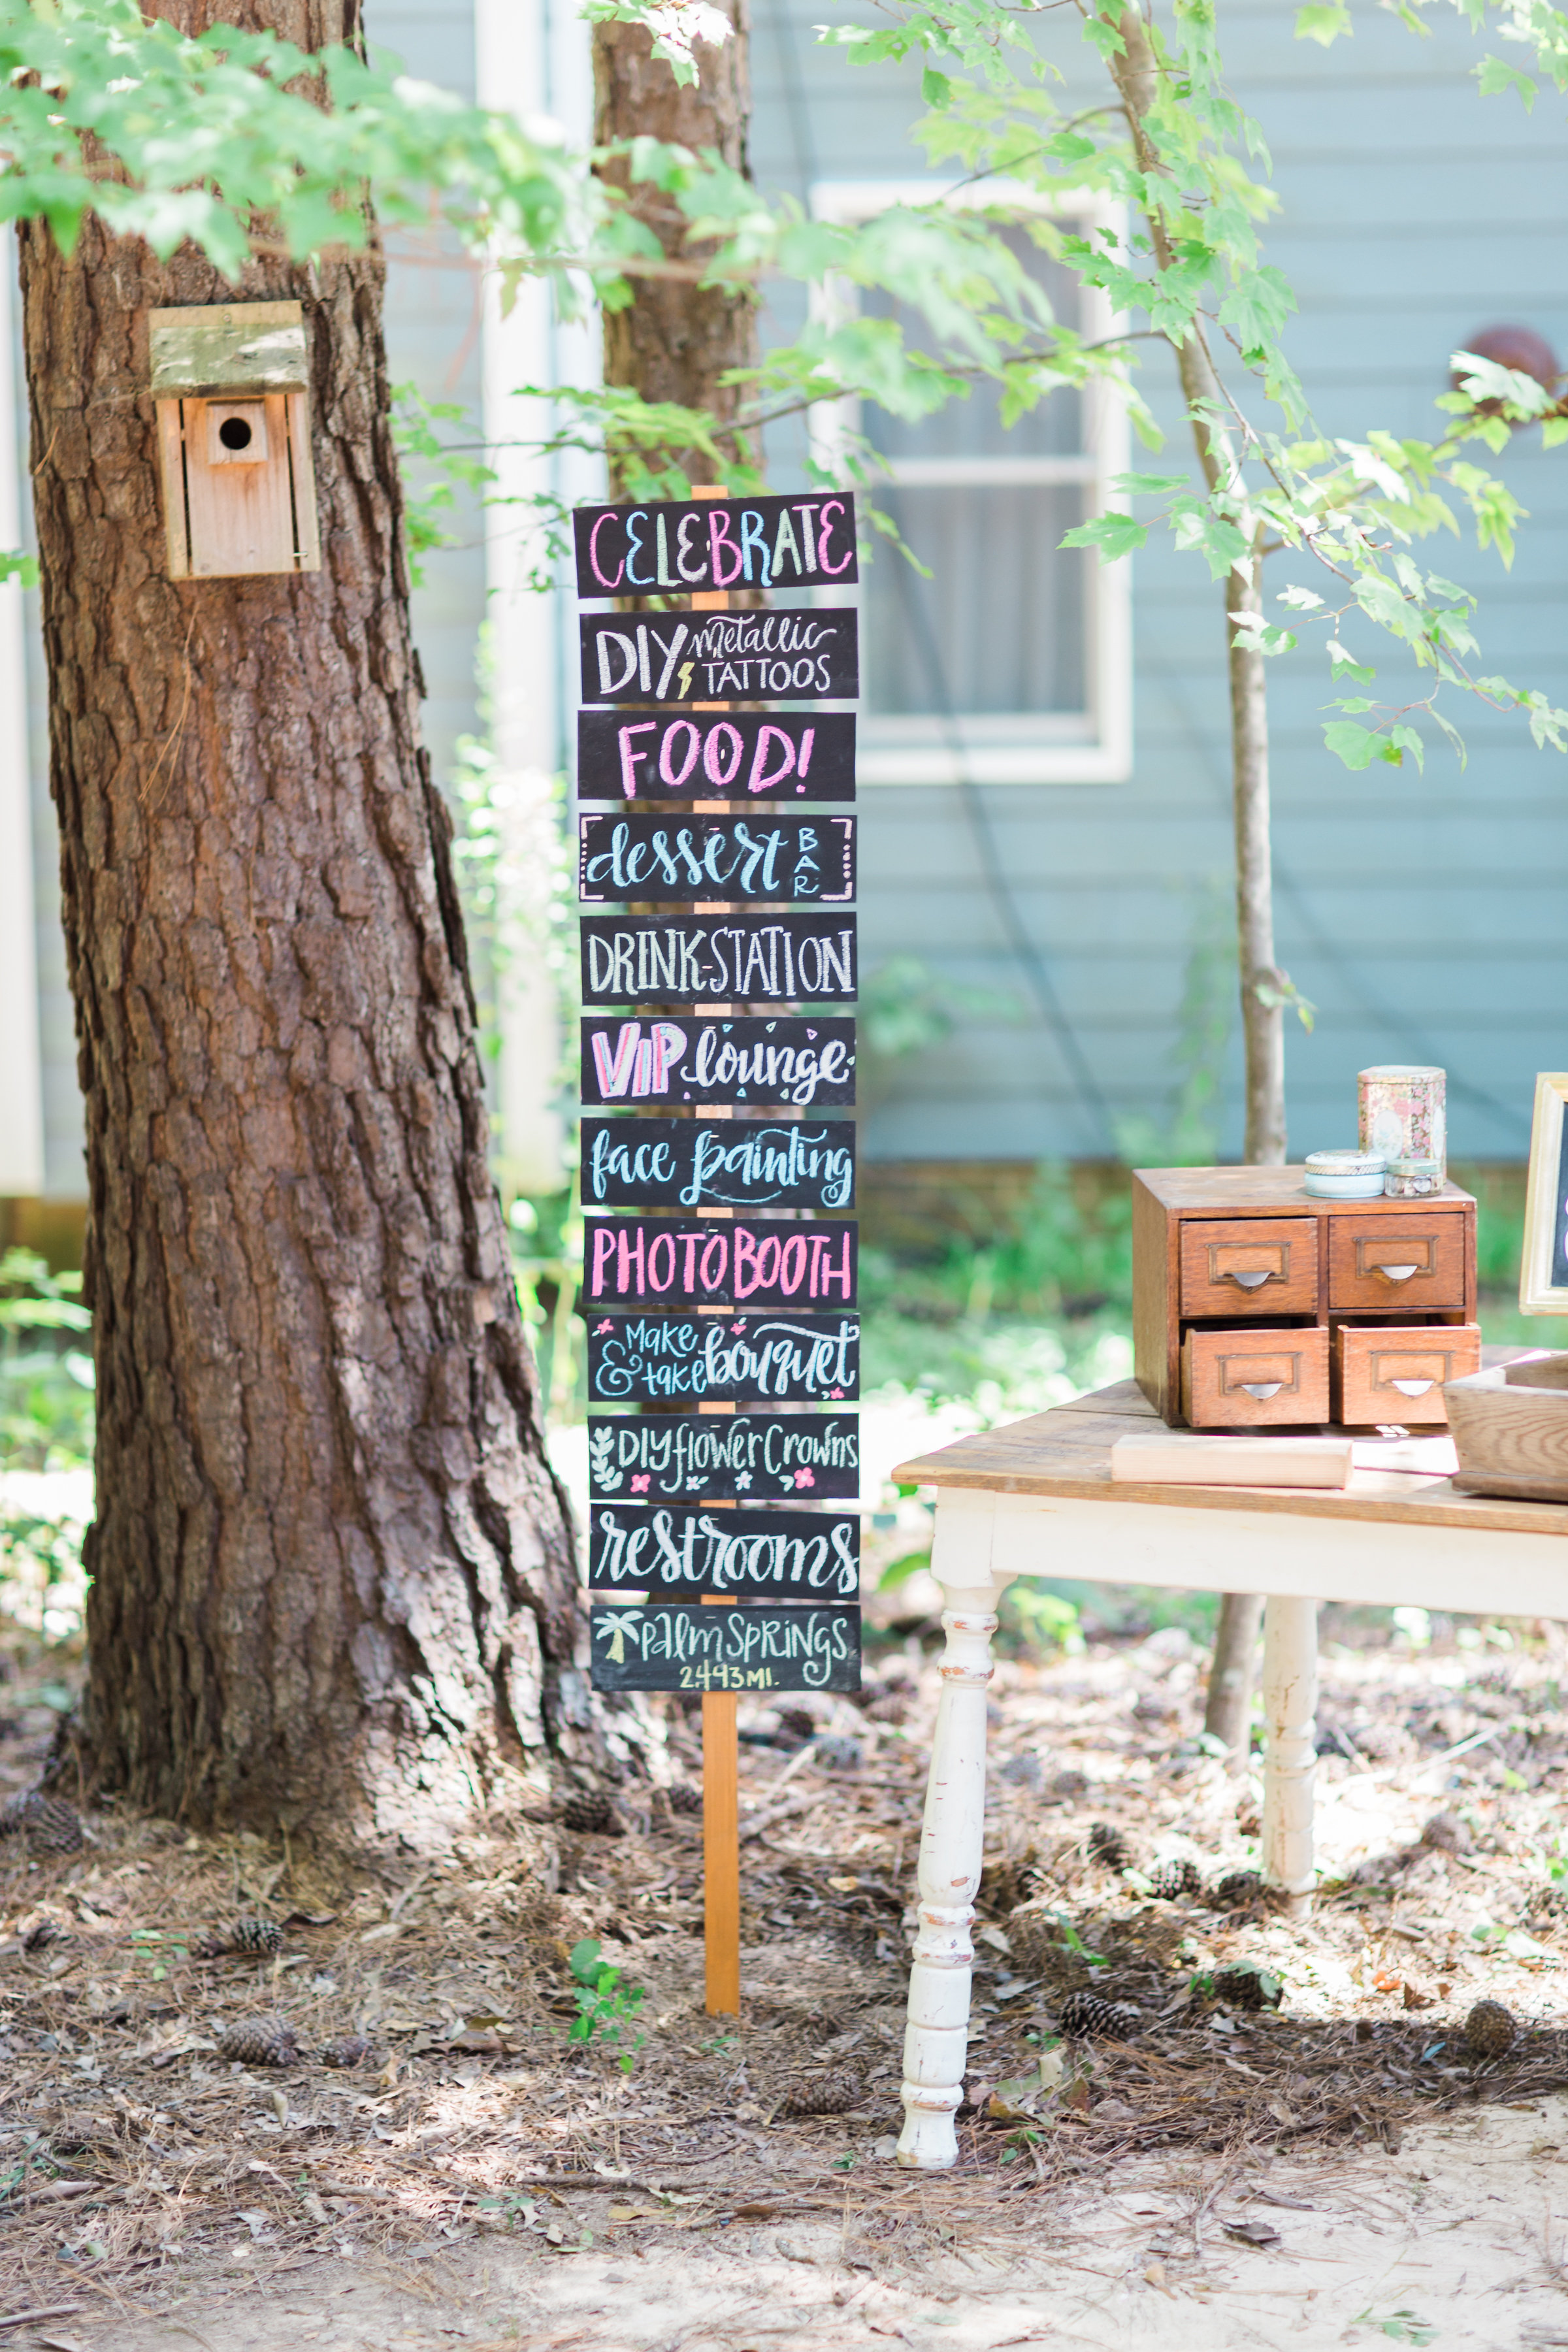 CELEBRATE
DIY metallic
TATTOOS
FOOD!
dessert BAR
DRINK STATION
VIP lounge
face painting
PHOTO BOOTH
Make
& take bouquet
DIY flower Crowns
restrooms
palm SPRINGS
2,493 MI.